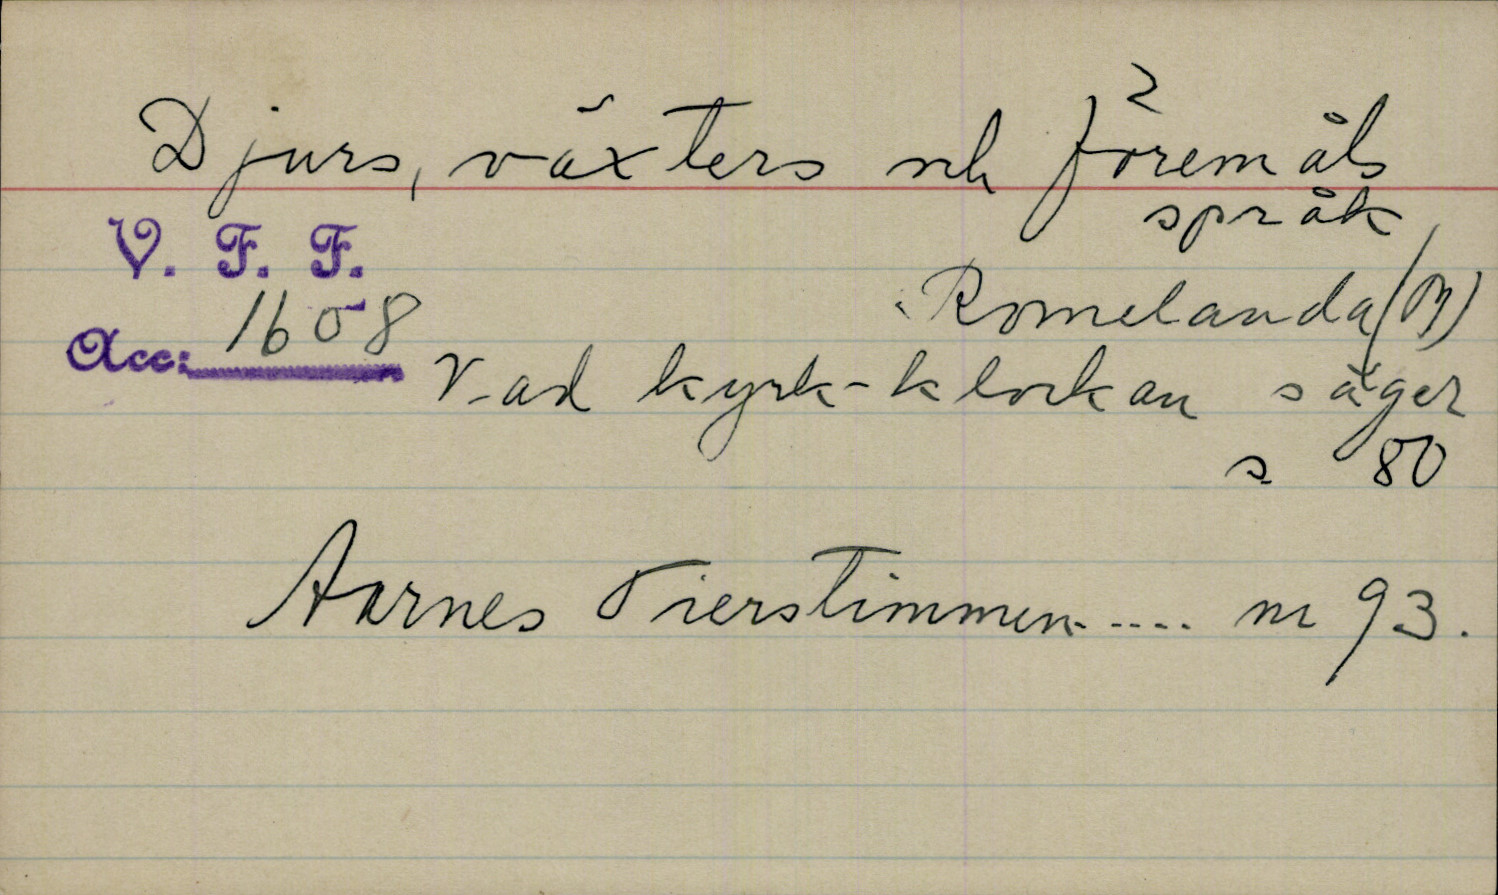 Djurs, växters och föremåls
språk
V. F. F.
Romelanda (B)
Acc: 1608
Vad kyrk-klockan säger
s 80
Aarnes Tierstimmen..... nr 93.